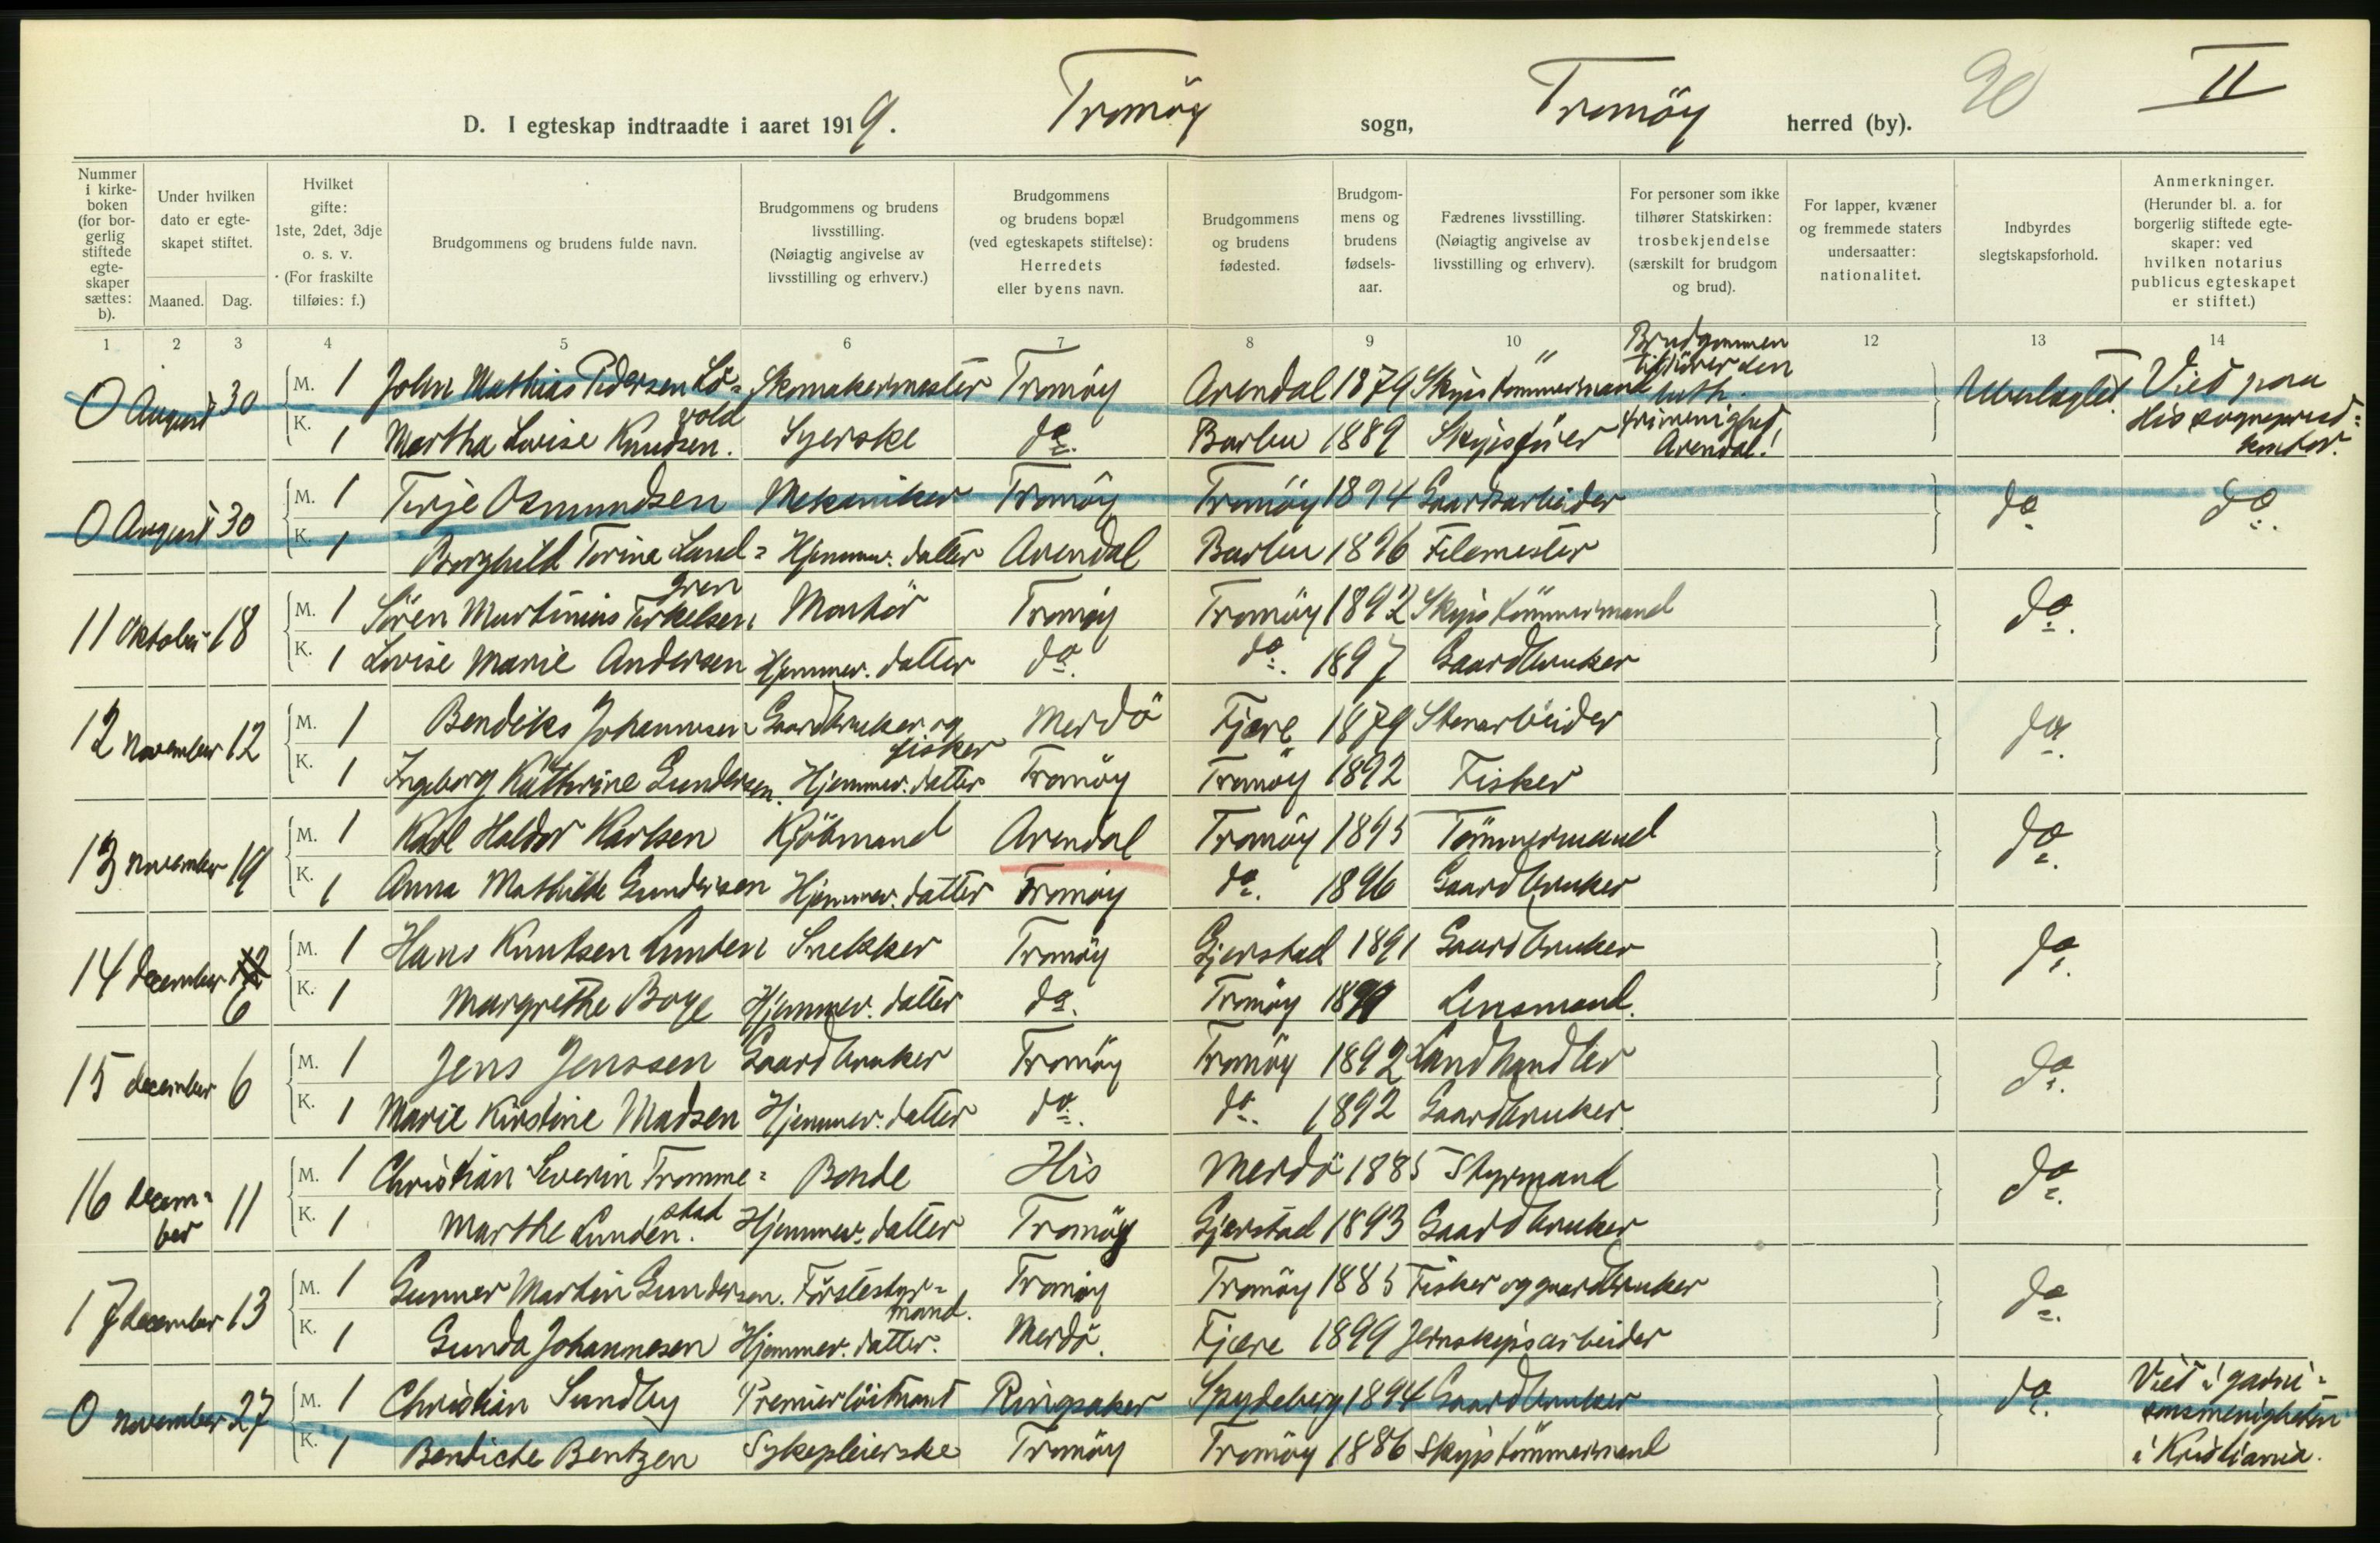 D. I egteskap indtraadte i aaret 1919. Tromöy sogn, Tromöy herred (by). 20 II
Nummer i kirkeboken (for borgerlig stiftede egteskaper sættes: b). Under hvilken dato er egteskapet stiftet. Maaned. Dag. Hvilket gifte: 1ste, 2det, 3dje o. s. v. (For fraskilte tilføies: f.) Brudgommens og brudens fulde navn. Brudgommens og brudens livsstilling. (Nøiagtig angivelse av livsstilling og erhverv.) Brudgommens og brudens bopæl (ved egteskapets stiftelse): Herredets eller byens navn. Brudgommens og brudens fødested. Brudgommens og brudens fødselsaar. Fædrenes livsstilling. (Nøiagtig angivelse av livsstilling og erhverv). For personer som ikke tilhører Statskirken: trosbekjendelse (særskilt for brudgom og brud). For lapper, kvæner og fremmede staters undersaatter: nationalitet. Indbyrdes slegtskapsforhold. Anmerkninger. (Herunder bl. a. for borgerlig stiftede egteskaper: ved hvilken notarius publicus egteskapet er stiftet.)
1 2 3 4 5 6 7 8 9 10 11 12 13 14
0 August 30 M. 1 John Mathias Pedersen Lövold Skomakermester Tromöy Arendal 1879 Skipstömmermand Brudgommen tilhörer den luth. frimenighet Arendal! Ubeslegtet. Viet paa His sogneprestkontor.
K. 1 Martha Lovise Knudsen. Syerske do. Barbu 1889 Skipsfüer
0 August 30 M. 1 Terje Osmundsen Mekaniker Tromöy Tromöy 1894 Gaardsarbeider do do.
K. 1 Borghild Torine Landgren Hjemmev. datter Arendal Barbu 1896 Filemester
11 Oktober 18 M. 1 Sören Martinius Terkelsen Montör Tromöy Tromöy 1892 Skipstömmermand do.
K. 1 Lovise Marie Andersen Hjemmev. datter do. do. 1897 Gaardbruker
12 November 12 M. 1 Bendiks Johannesen Gaardbruker og fisker Merdö Fjære 1879 Stenarbeider do.
K. 1 Ingeborg Kathrine Gundersen. Hjemmev. datter Tromöy Tromöy 1892 Fisker
13 November 19 M. 1 Karl Haldor Karlsen Kjöbmand Arendal Tromöy 1895 Tömmermand do.
K. 1 Anna Mathilde Gundersen Hjemmev. datter Tromöy do. 1896 Gaardbruker
14 December 6 M. 1 Hans Knutsen Lunden Snekker Tromöy Gjerstad 1891 Gaardbruker do.
K. 1 Margrethe Boye Hjemmev. datter do. Tromöy Lensmand.
15 december 6 M. 1 Jens Jenssen Gaardbruker Tromöy Tromöy 1892 Landhandler do.
K. 1 Marie Kirstine Madsen Hjemmev. datter do. do. 1892 Gaardbruker
16 december 11 M. 1 Christian Severin Trommestad Bonde His Merdö 1885 Styrmand do.
K. 1 Marthe Lunden. Hjemmev. datter Tromöy Gjerstad 1893 Gaardbruker
17 december 13 M. 1 Gunner Martin Gundersen. Förstestyrmand. Tromöy Tromöy 1885 Fisker og gaardbruker do.
K. 1 Gunda Johannesen Hjemmev. datter. Merdö. Fjære 1899 Jernskipsarbeider
0 November 27 M. 1 Christian Sundby Premierlöitnant Ringsaker Spydeberg 1894 Gaardbruker do. Viet i garnisonsmenigheten i Kristiania.
K. 1 Bendicte Bentzen Sykepleierske Tromöy Tromöy 1886 Skipstömmermand